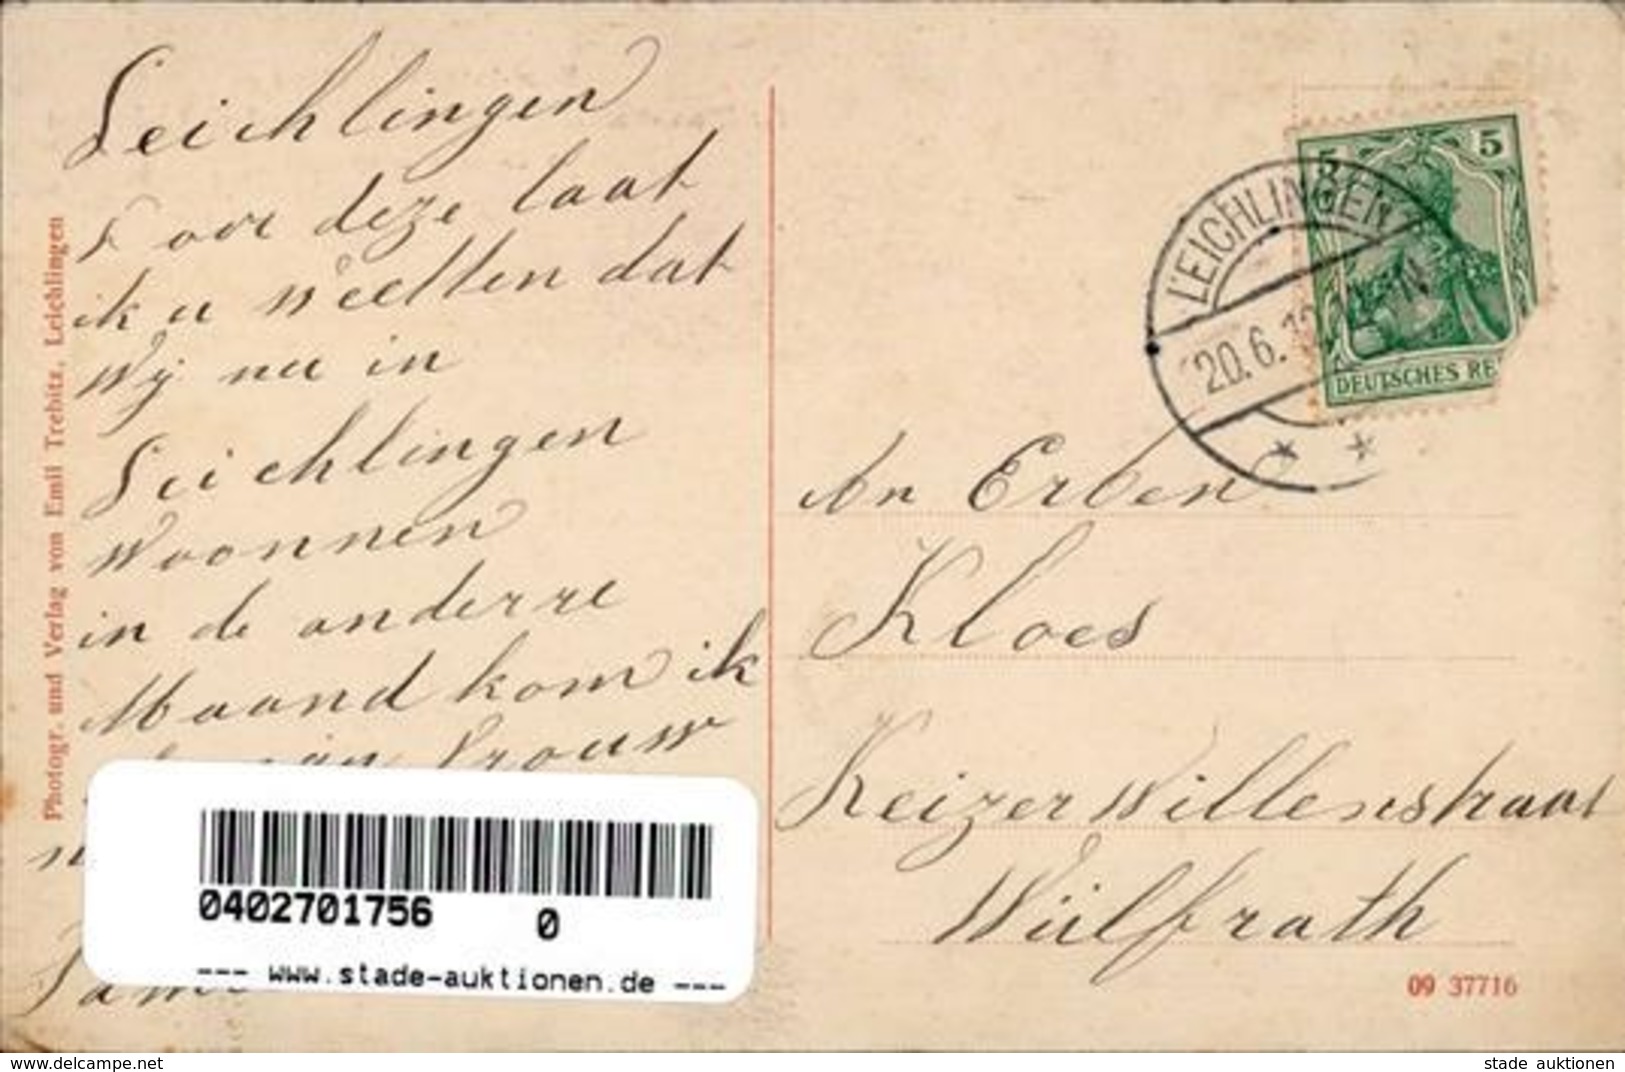 Leichlingen
Voor deze laat
ik u weetten dat
Wij nu in
Leichlingen
Woonnen
in de anderre
Maand kom ik
mijn Vrouw
Photogr. und Verlag von Emil Trebitz, Leichlingen
5 5
DEUTSCHES RE
LEICHLINGEN
20.6.
An Erben
Kloes
Keizer Willemstraat
Wülfrath
09 37716
0402701756 0
--- www.stade-auktionen.de ---
www.delcampe.net
stade_auktionen